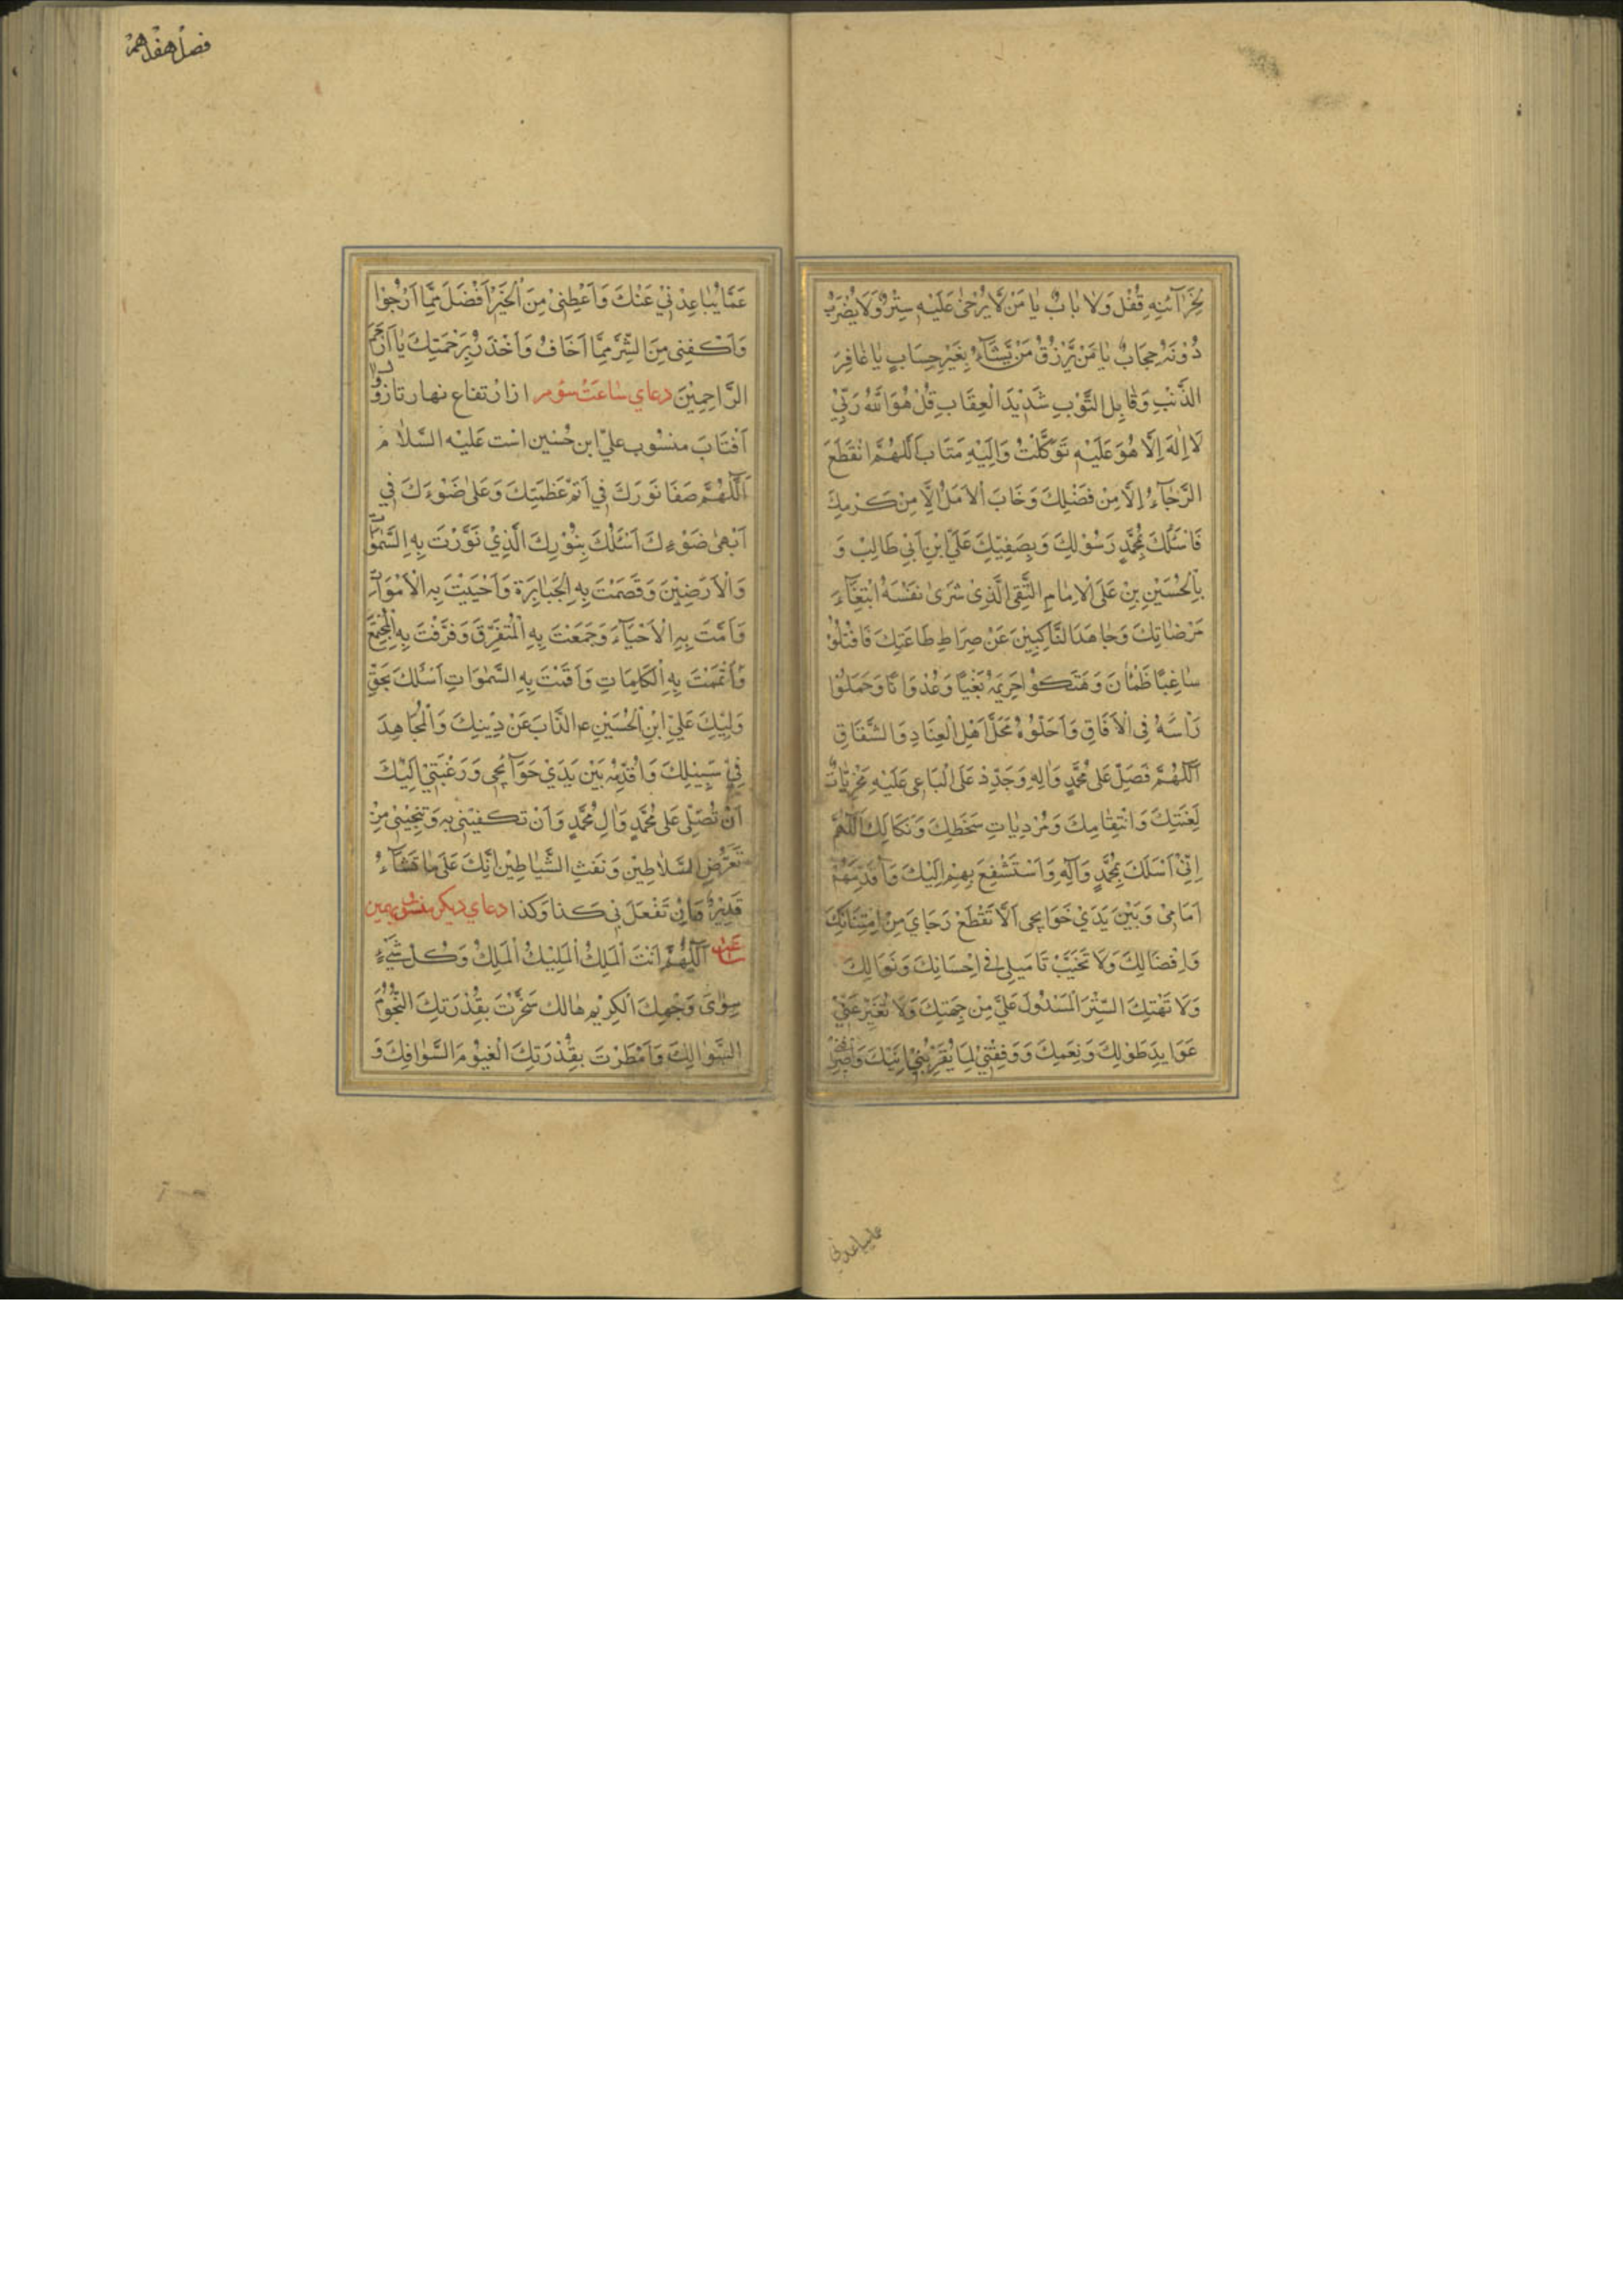 لِخَزَآئِنِهِ قُفْلٌ وَلَا بَابٌ يَا مَنْ لَا يُرْخَىٰ عَلَيْهِ سِتْرٌ وَلَا يُضْرَبُ
دُوْنَهُ حِجَابٌ يَا مَنْ يَرْزُقُ مَنْ يَّشَآءُ بِغَيْرِ حِسَابٍ يَا غَافِرَ
الذَّنْبِ وَقَابِلَ التَّوْبِ شَدِيْدَ الْعِقَابِ قُلْ هُوَ اللّٰهُ رَبِّيْ
لَا اِلٰهَ اِلَّا هُوَ عَلَيْهِ تَوَكَّلْتُ وَاِلَيْهِ مَتَابِ اَللّٰهُمَّ انْقَطَعَ
الرَّجَآءُ اِلَّا مِنْ فَضْلِكَ وَخَابَ الْاَمَلُ اِلَّا مِنْ كَرَمِكَ
فَاَسْئَلُكَ بِمُحَمَّدٍ رَسُوْلِكَ وَبِصَفِيِّكَ عَلِيِّ ابْنِ اَبِيْ طَالِبْ وَ
بِالْحُسَيْنِ بْنِ عَلَى الْاِمَامِ التَّقِى الَّذِىْ شَرَىٰ نَفْسَهُ ابْتِغَآءَ
مَرْضَاتِكَ وَجَاهَدَ النَّاكِبِيْنَ عَنْ صِرَاطِ طَاعَتِكَ فَاقْتُلُوْ
سَاغِبًا ظَمْاٰنَ وَهَتَكُوْا حَرِيْمَهُ بَغْيًا وَعُدْوَانًا وَحَمَلُوْا
رَاْسَهُ فِى الْاٰفَاقِ وَاَحَلُّوْهُ مَحَلَّ اَهْلِ الْعِنَادِ وَالشَّقَاقِ
اَللّٰهُمَّ فَصَلِّ عَلٰى مُحَمَّدٍ وَاٰلِهِ وَجَدِّدْ عَلَى الْبَاغِى عَلَيْهِ مُخْزِيَاتِ
لَعْنَتِكَ وَانْتِقَامِكَ وَمُرْدِيَاتِ سَخَطِكَ وَنَكَالِكَ اَللّٰهُمَّ
اِنِّيْ اَسْئَلُكَ بِمُحَمَّدٍ وَآلِهِ وَاَسْتَشْفِعُ بِهِمْ اِلَيْكَ وَاُقَدِّمُهُمْ
اَمَامِىْ وَبَيْنَ يَدَيْ حَوَايِجِى اَلَّا تَقْطَعْ رَجَايَ مِنْ اِمْتِنَانِكَ
وَاِفْضَالِكَ وَلَا تُخَيِّبْ تَامِيْلِىْ فِى اِحْسَانِكَ وَنَوَالِكَ
وَلَا تَهْتِكَ السِّتْرَ الْمَسْدُولَ عَلَيَّ مِنْ جِهَتِكَ وَلَا تُغَيِّرْ عَنِّيْ
عَوَايِدَ طَوْلِكَ وَنِعَمِكَ وَوَفِقْنِيْ لِمَا يُقَرِّبُنِيْ اِلَيْكَ وَاصْرِفْنِىْ
عما يباعدني
فصل هفدهم
عَمَّا يُبَاعِدُنِيْ عَنْكَ وَاَعْطِنِىْ مِنَ الْخَيْرِ اَفْضَلَ مِمَّا اَرْجُوْا
وَاَكْفِنِى مِنَ الشَّرِّ مِمَّا اَخَافُ وَاَحْذَرُ بِرَحْمَتِكَ يَا اَرْحَمَ
الرَّاحِمِيْنَ دعاي ساعت سوم از ارتفاع نهار تا زوال
آفتاب منسوب علي ابن حسين است عليه السلام
اَللّٰهُمَّ صَفَا نُوْرَكَ فِي اَتَمِّ عَظَمَتِكَ وَعَلٰى ضَوْءَكَ فِي
اَبْهىٰ ضَوْءِكَ اَسْئَلُكَ بِنُوْرِكَ الَّذِيْ نَوَّرْتَ بِهِ السَّمٰوَاتِ
وَالْاَرَضِيْنَ وَقَصَمْتَ بِهِ الْجَبَابِرَةَ وَاَحْيَيْتَ بِهِ الْاَمْوَاتَ
وَاَمَتَّ بِهِ الْاَحْيَآءَ وَجَمَعْتَ بِهِ الْمُتَفَرِّقَ وَفَرَّقْتَ بِهِ الْمُجْتَمِعَ
وَاَتْمَمْتَ بِهِ الْكَلِمَاتِ وَاَقَمْتَ بِهِ السَّمٰوَاتِ اَسْئَلُكَ بِحَقِّ
وَلِيِّكَ عَلِيِّ ابْنِ الْحُسَيْنِ ع الذَّابَ عَنْ دِيْنِكَ وَالْمُجَاهِدَ
فِيْ سَبِيْلِكَ وَاُقَدِّمُهُ بَيْنَ يَدَيْ حَوَآئِجِى وَرَغْبَتِيْ اِلَيْكَ
اَنْ تُصَلِّىَ عَلٰى مُحَمَّدٍ وَاٰلِ مُحَمَّدٍ وَاَنْ تَكْفِيَنِى بِهِ وَتُنْجِيَنِىْ مِنْ
تَعَرُّضِ السَّلَاطِيْنِ وَنَفَثِ الشَّيَاطِيْنِ اِنَّكَ عَلَى مَا تَشَآءُ
قَدِيْرٌ وَاَنْ تَفْعَلَ بِى كَذَا وَكَذَا دعاي ديكر منسوب بهمين
ساعت اَللّٰهُمَّ اَنْتَ الْمَلِكُ الْمَلِيْكُ الْمَلِكُ وَكُلُّ شَىْءٍ
سِوٰى وَجْهِكَ الْكَرِيْمِ هَالِك سَخَّرْتَ بِقُدْرَتِكَ النُّجُوْمَ
السَّوَالِكَ وَاَمْطَرْتَ بِقُدْرَتِكَ الْغُيُوْمَ السَّوَافِكَ وَ